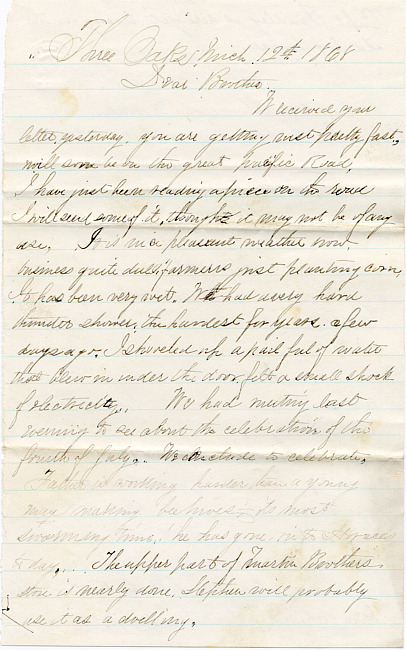 Three Oaks Mich. 12th 1868
Dear Brother
We received your
letter yesterday. you are getting west pretty fast,
will soon be on the great pacific Road,
I have just been reading a piece on the road
I will send some of it, though it may not be of any
use. It is pleasant weather now
business quite dull farmers just planting corn,
it has been very wet. We had a very hard
thunder shower, the hardest for years a few
days ago. I shoveled up a pail full of water
that blew in under the door, felt a small shock
of electricity. We had meeting last
evening to see about the celebration of the
fourth of July. We conclude to celebrate,
Father is working harder than a young
man making bee hives, its most
swarming time, he has gone in to
to day. The upper part of Martin Brothers
store is nearly done. Stephen will probably
use it as a dwelling.